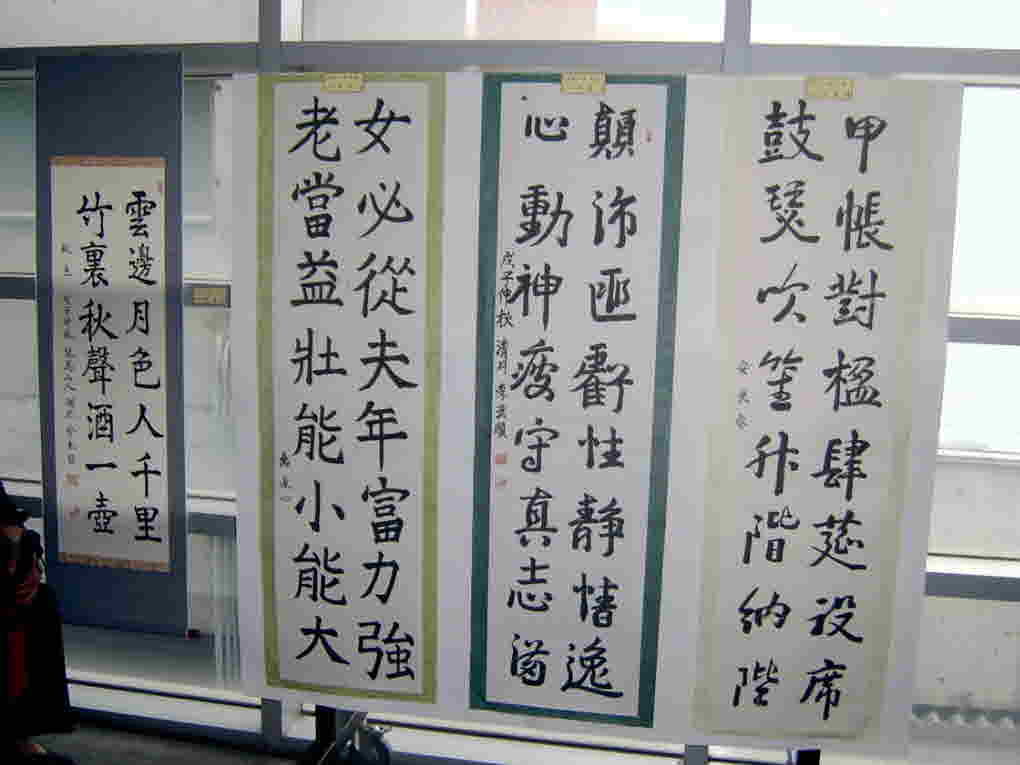 甲帳對楹肆筵設席
鼓瑟吹笙升階納陛
顛沛匪虧性靜情逸
心動神疲守真志滿
戊子仲秋 清月
女必從夫年富力強
老當益壯能小能大
雲邊月色人千里
竹裏秋聲酒一壺